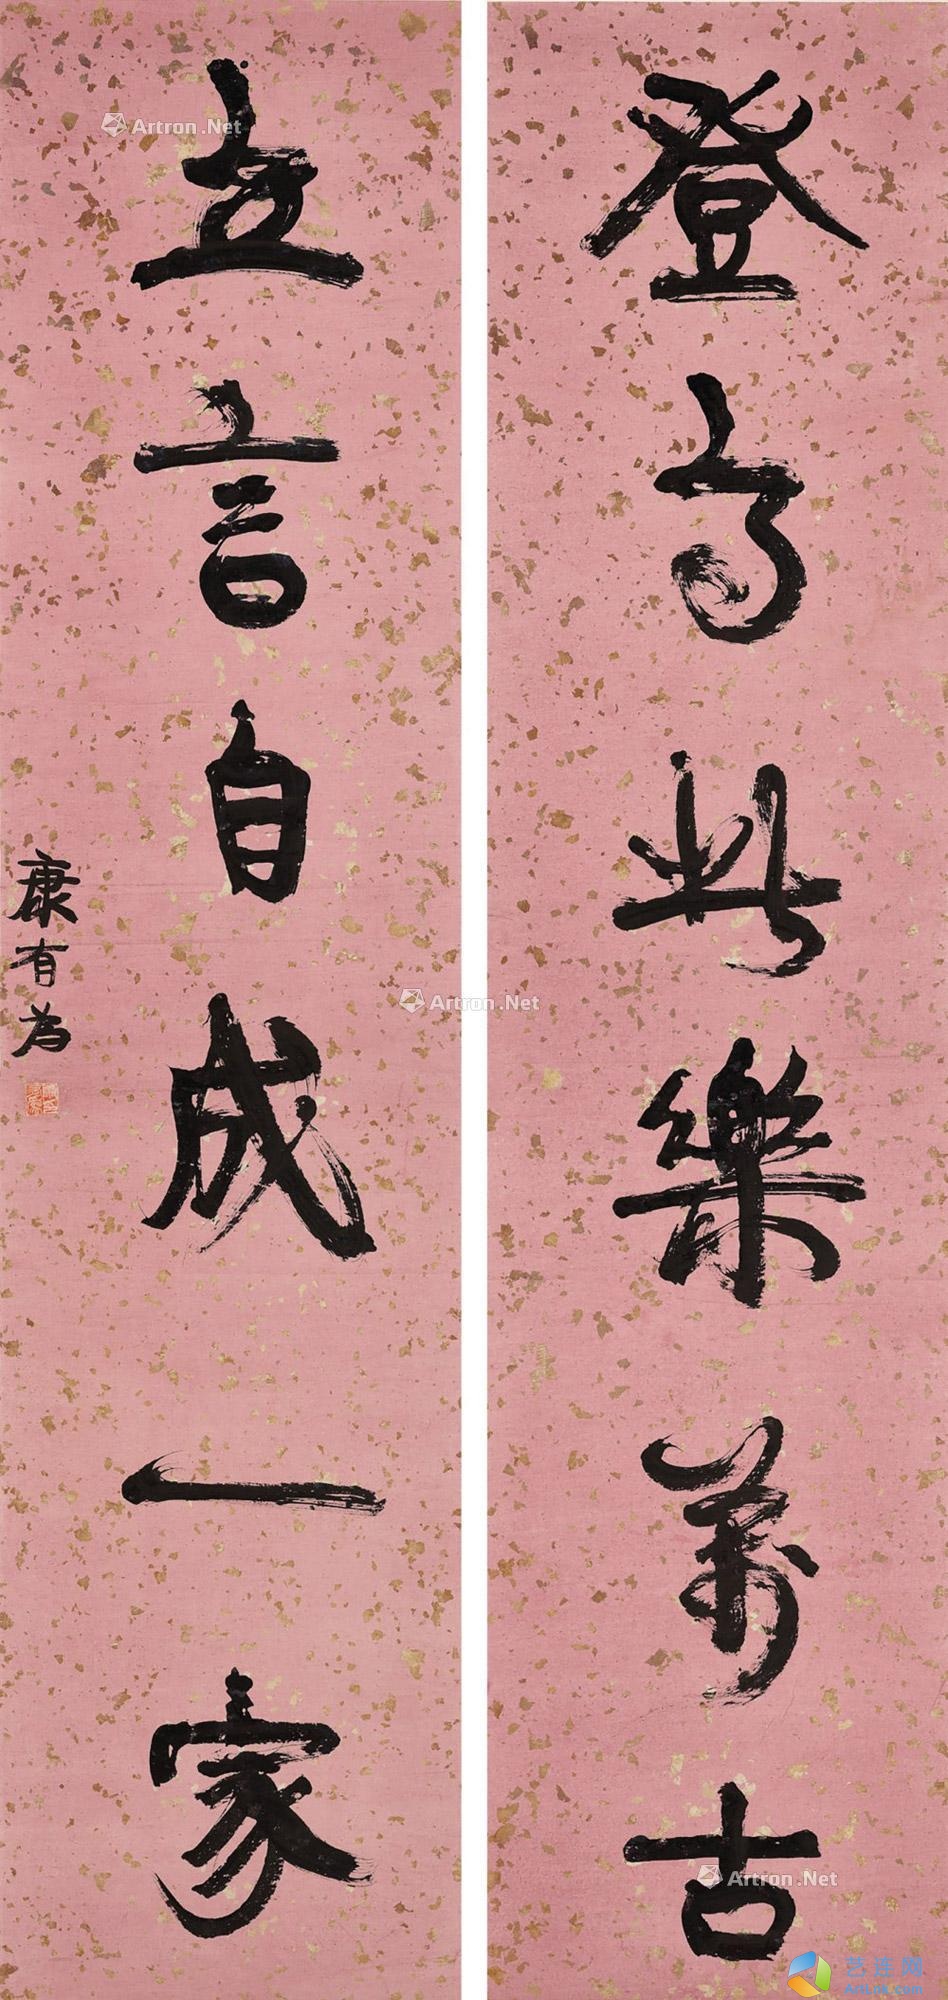 登高此樂萬古
立言自成一家
康有為
Artron.Net
Artron.Net
Artron.Net
艺连网
ArtLnk.com